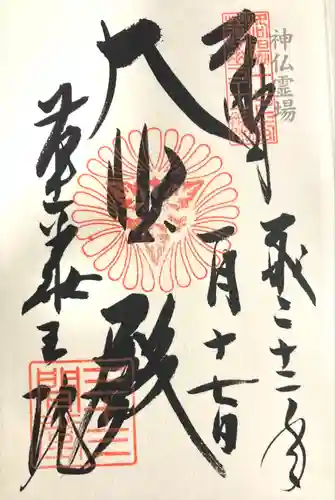 神仏霊場
奉拝
平成二十二年
一月十七日
大悲殿
蓮華王院